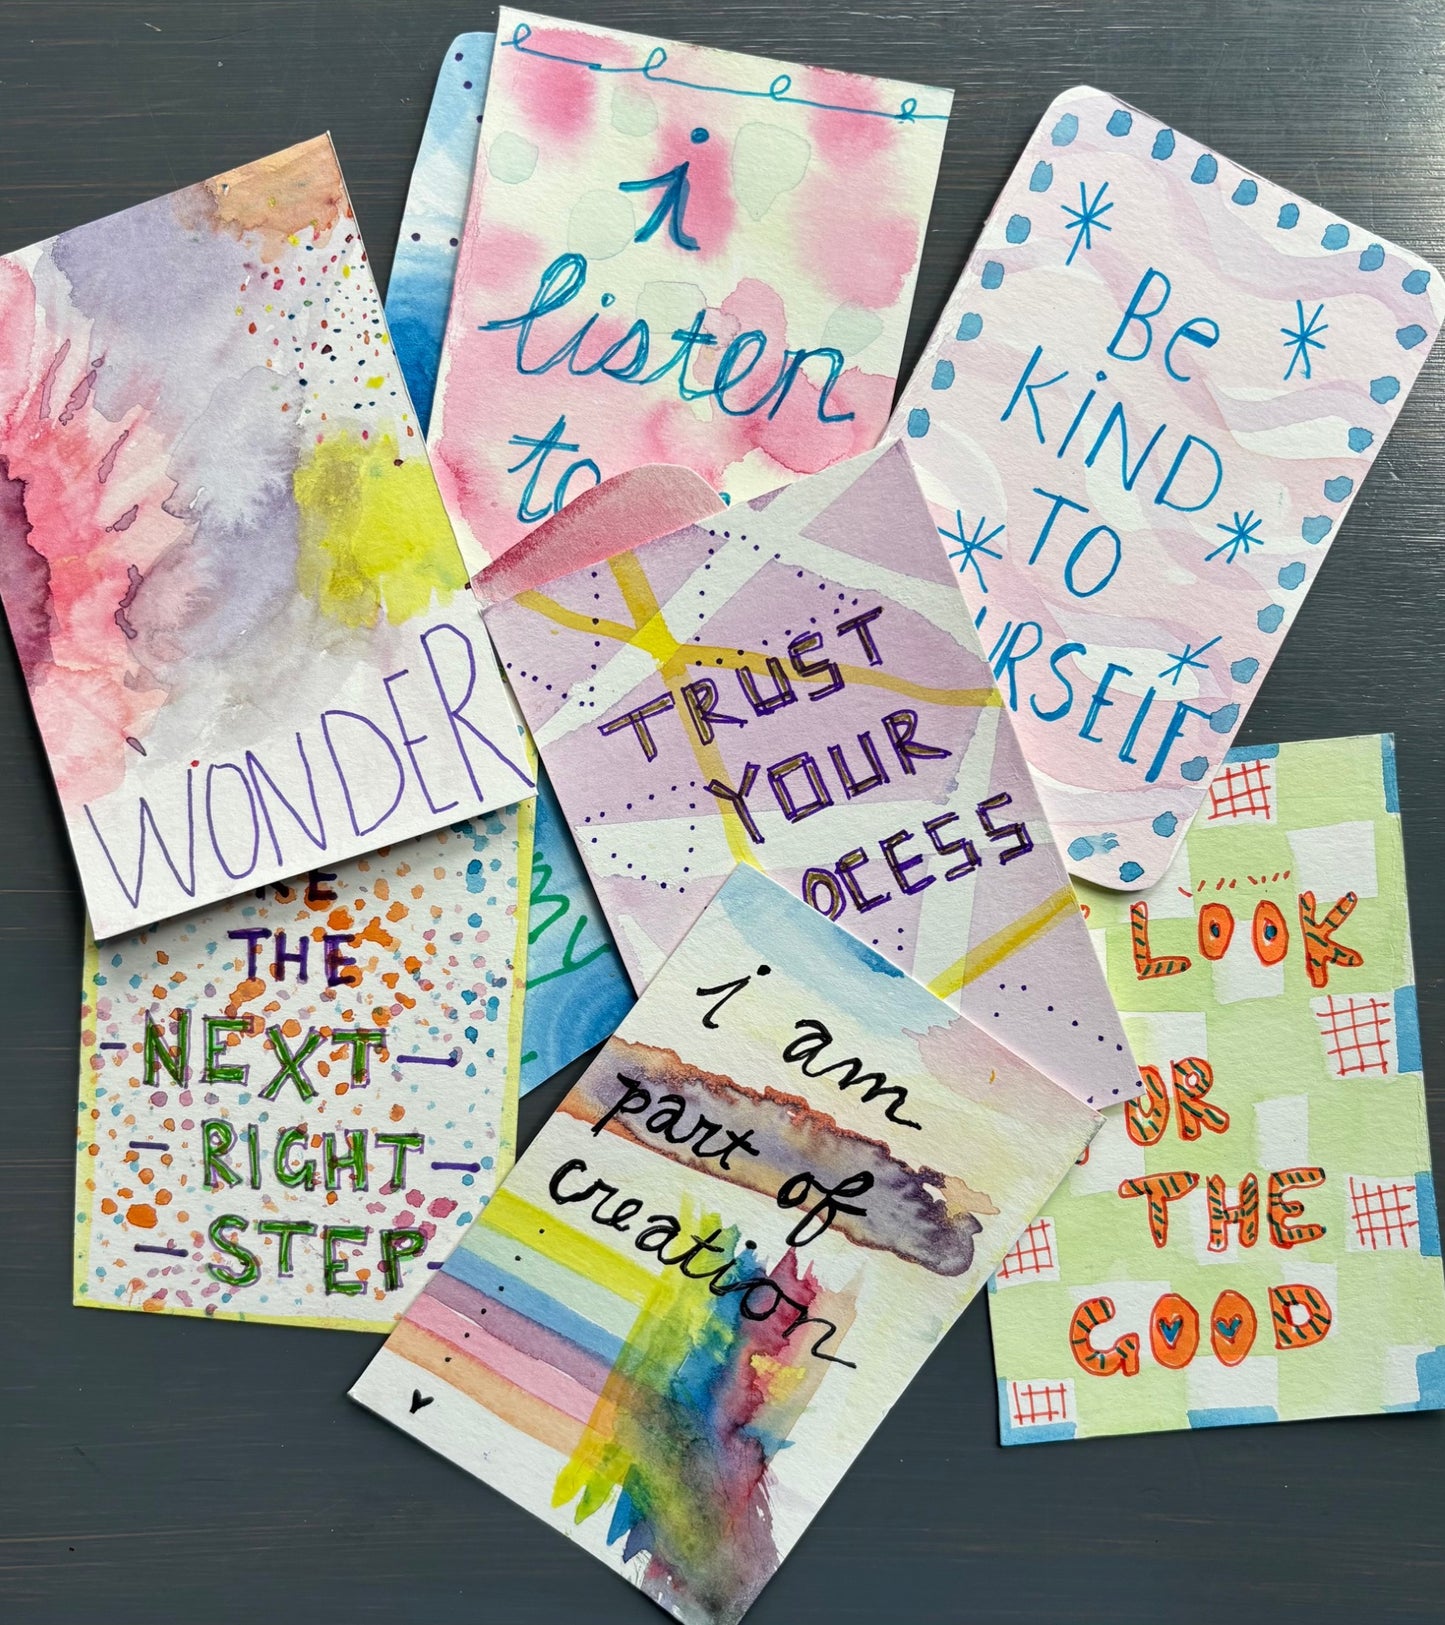 i
listen
to
Be
KiND
TO
URSELF
WONDER
TRUST
YOUR
OCESS
KE
THE
NEXT
RIGHT
STEP
My
i am
part of
creation
LOOK
OR
THE
GOOD